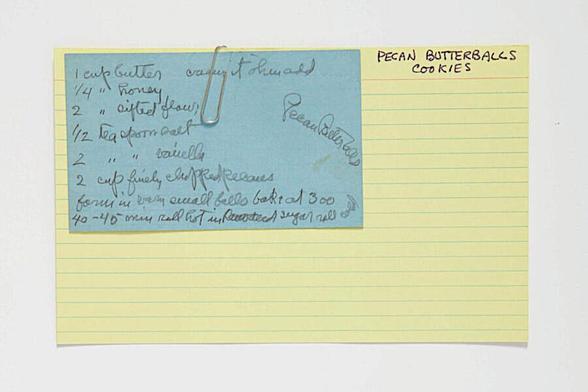 PECAN BUTTERBALLS
COOKIES
1 cup butter cream it then add
1/4 " honey
2 " sifted flour
1/2 teaspoon salt
2 " " vanilla
2 cup finely chopped pecans
form in very small balls bake at 300
40-45 min roll hot in powdered sugar roll
Pecan Butter Balls